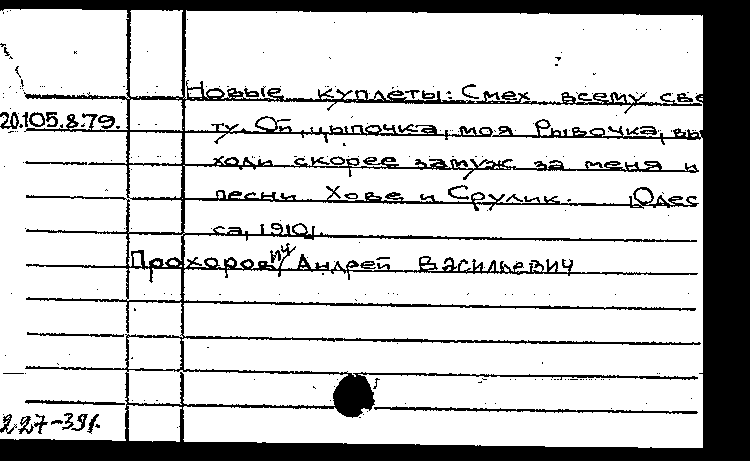 Новые куплеты: Смех всему све
20.105.8.79. ту. Ой, цыпочка, моя Рывочка, вы
ходи скорее замуж за меня и
песни Хове и Срулик. Одес
са, 1910г.
Прохоров Андрей Васильевич
227-391.